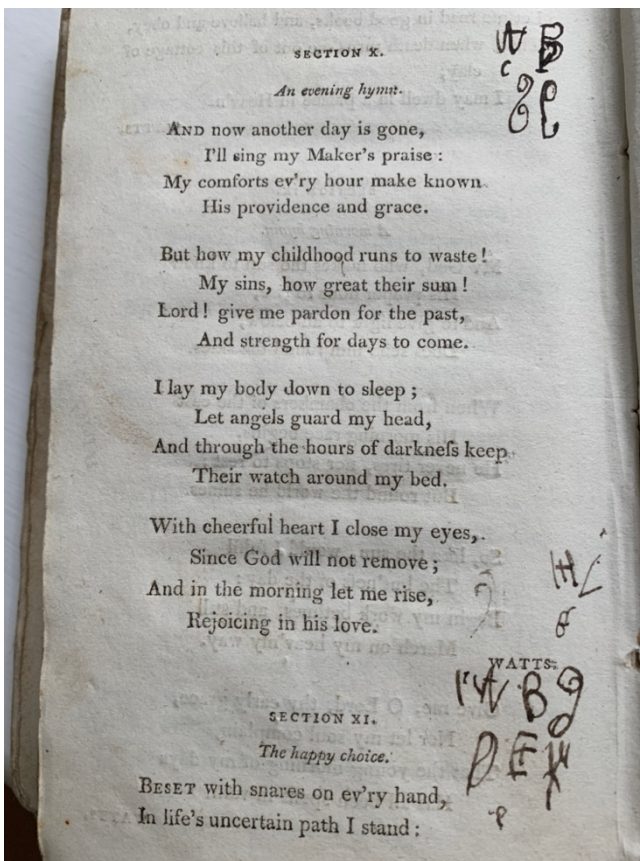 SECTION X.
An evening hymn.
AND now another day is gone,
I'll sing my Maker's praise :
My comforts ev'ry hour make known
His providence and grace.
But how my childhood runs to waste !
My sins, how great their sum !
Lord ! give me pardon for the past,
And strength for days to come.
I lay my body down to sleep ;
Let angels guard my head,
And through the hours of darkneſs keep
Their watch around my bed.
With cheerful heart I close my eyes,
Since God will not remove ;
And in the morning let me rise,
Rejoicing in his love.
WATTS.
SECTION XI.
The happy choice.
BESET with snares on ev'ry hand,
In life's uncertain path I stand :